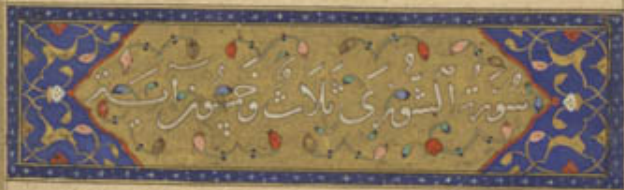 سُورَةُ الشُّورَى ثَلَاثُ وَخَمْسُونَ آيَة